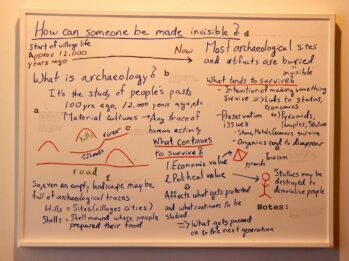 How can someone be made invisible?
Start of village life
Approx 12.000
years ago
Now
Most archaeological sites
and artifacts are buried
invisible
What is archaeology?
b
It's the study of people's pasts
100 yrs ago, 12,000 years ago, etc
Material cultures → Any trace of
human activity
a
hills
river
c
mounds
road
E
So, even an empty landscape may be
full of archaeological traces
Hills = Sites (villages cities)
Shells = Shell mound where people
prepared their food
What continues
to survive?
1. Economic value
2. Political value
Tourism
Affects what gets protected
and what continues to be
studied
⇒ What gets passed
on to the next generation
What tends to survive?
- Intention of making something
survive ⇒ Links to status,
economies
- Preservation issues
Pyramids,
Temples, Statues
- Stone, Metals, Ceramics survive
- Organics tend to disappear
Statues may be
destroyed to
demoralise people
Notes: